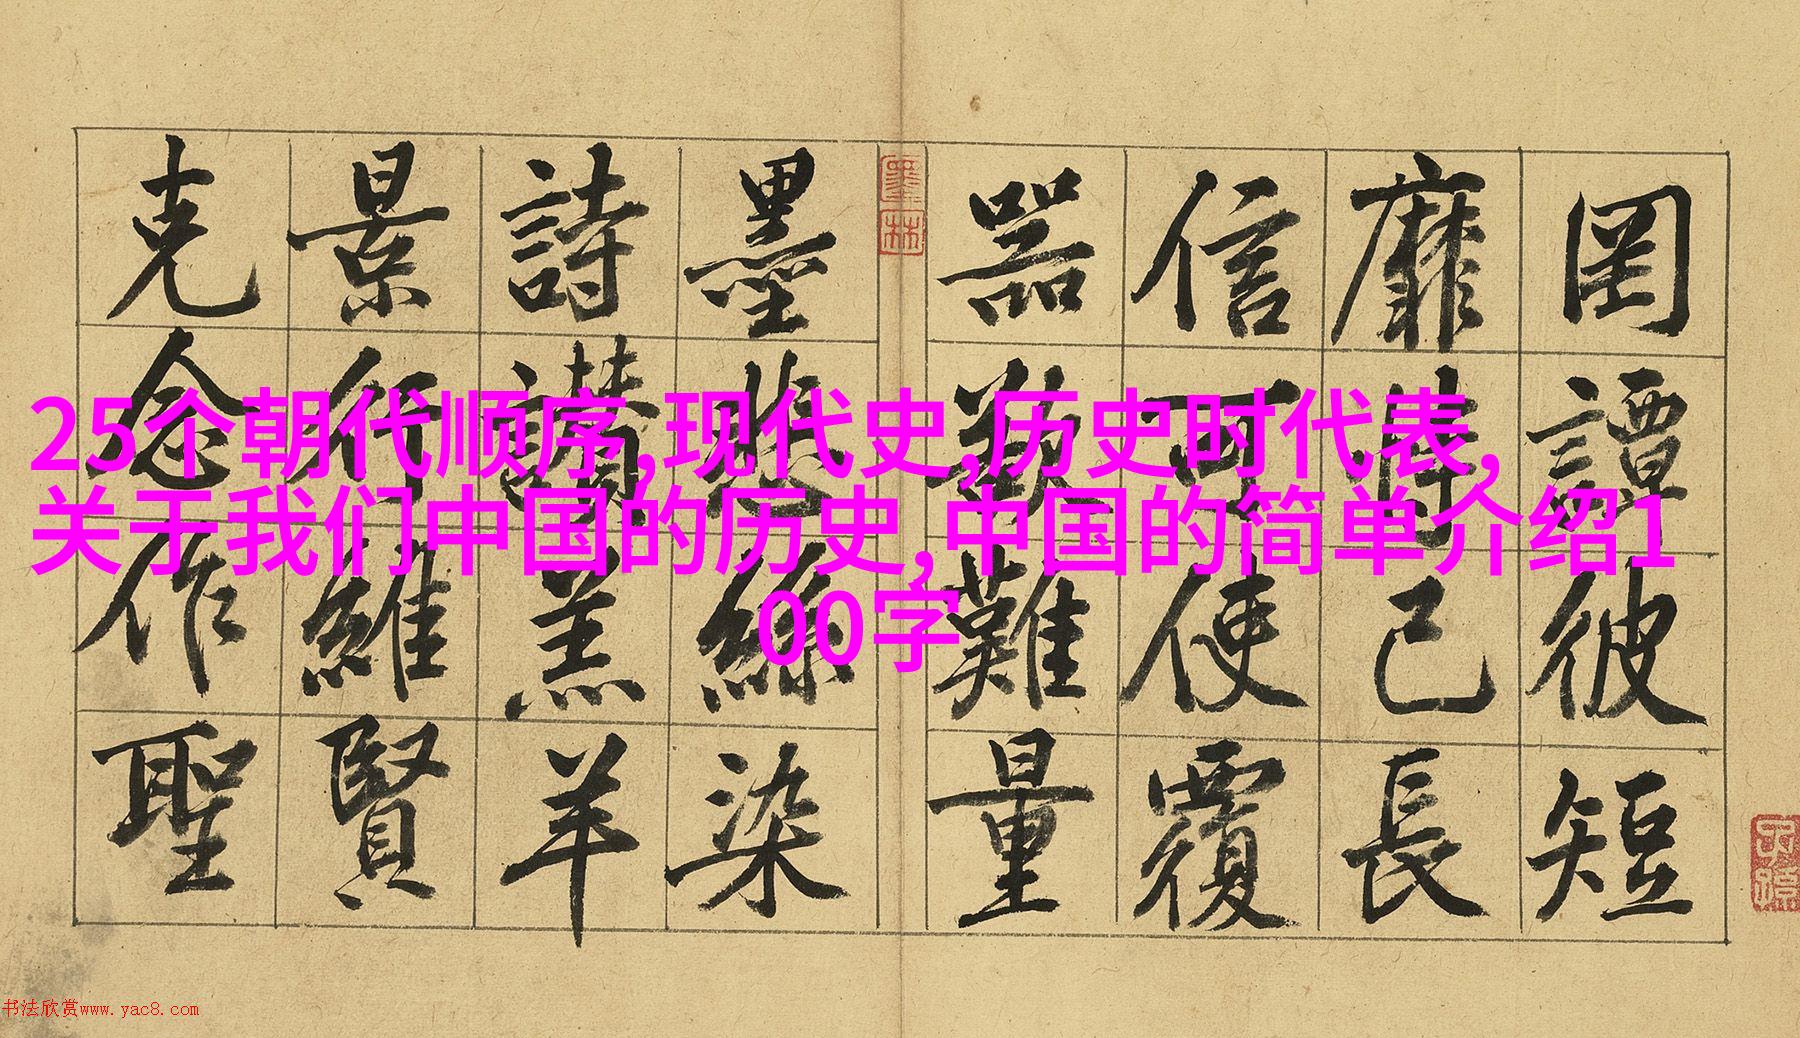 罔談彼短
靡恃己長
信可使覆
器欲難量
墨悲絲染
詩讚羔羊
景行維賢
克念作聖
墨林
25个朝代顺序,现代史,历史时代表,
关于我们中国的历史,中国的简单介绍1
00字
书法欣赏www.yac8.com